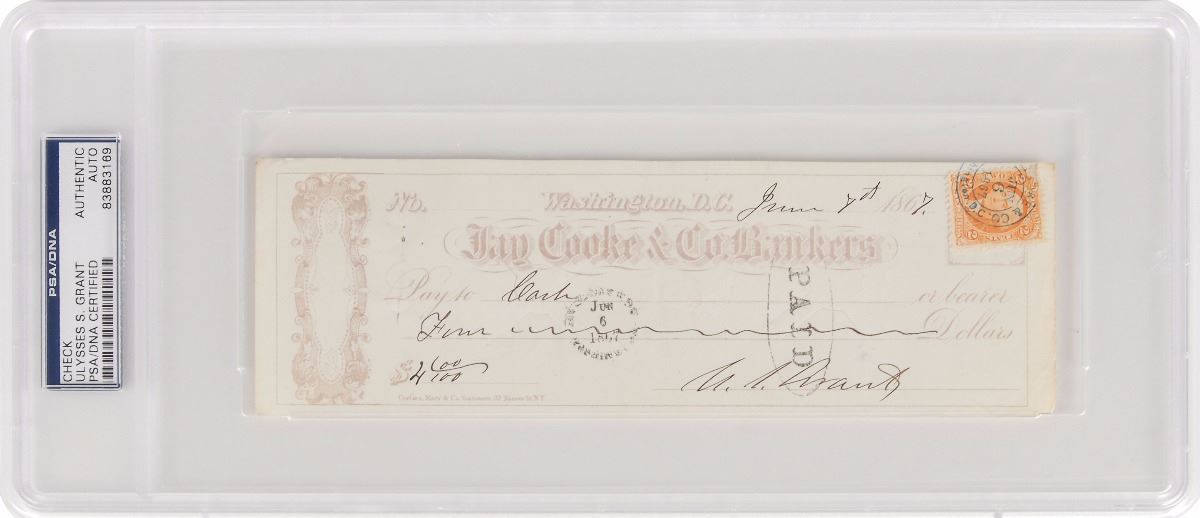 PSA/DNA
CHECK
ULYSSES S. GRANT
PSA/DNA CERTIFIED
AUTHENTIC
AUTO
83883169
No. Washington, D.C. June 7th 1867.
Jay Cooke & Co. Bankers
Pay to Cash or bearer
Four Dollars
$4 00/100
U. S. Grant
JUN
6
1867
PAID
& CO.
2 CENTS 2